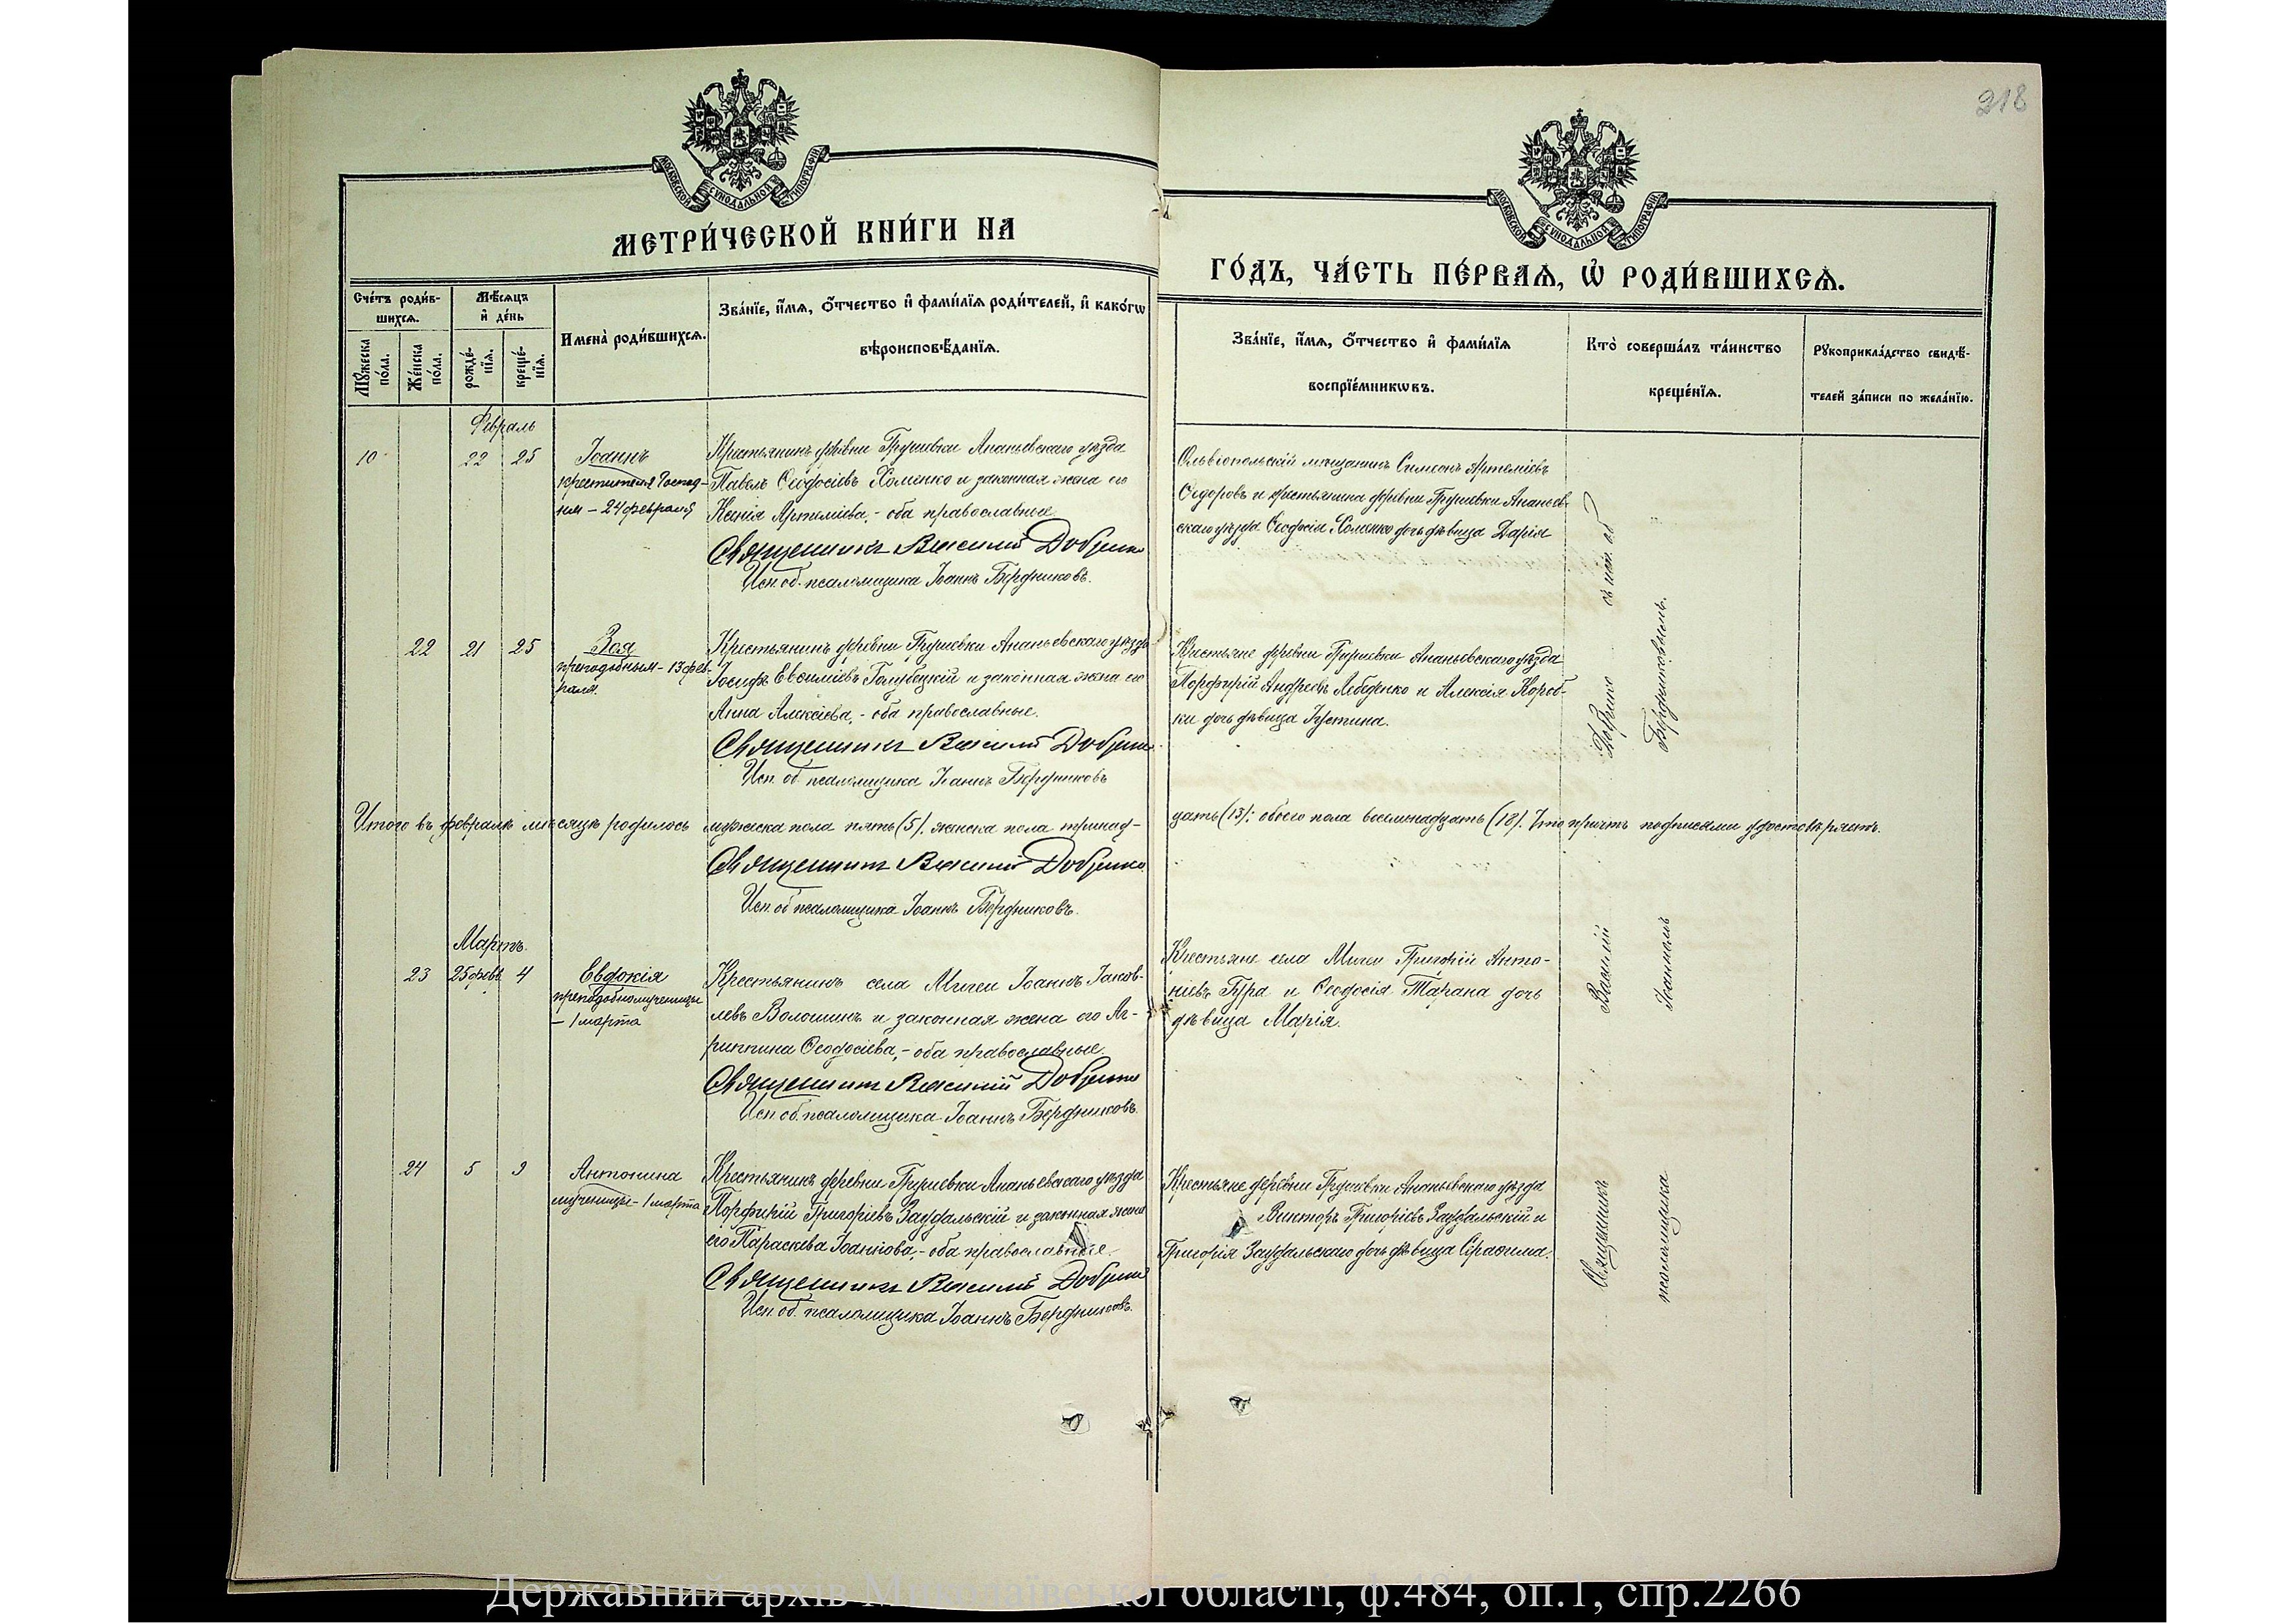 218
МОСКОВСКОЙ СѴНОДАЛЬНОЙ ТИПОГРАФІИ
МОСКОВСКОЙ СѴНОДАЛЬНОЙ ТИПОГРАФІИ
МЕТРИ́ЧЕСКОЙ КНИ́ГИ НА
ГО́ДЪ, ЧА́СТЬ ПЕ́РВАѦ, Ѡ҆ РОДИ́ВШИХСѦ.
Сче́тъ роди́в-
шихсѧ.
Мѣ́сѧцъ
и҆ де́нь
Мꙋ́жеска
по́ла.
Же́нска
по́ла.
рожде́-
нїѧ.
креще́-
нїѧ.
Имена̀ роди́вшихсѧ.
Зва́нїе, и҆́мѧ, ѻ҆́тчество и҆ фами́лїѧ роди́телей, и҆ како́гѡ
вѣроисповѣ́данїѧ.
Зва́нїе, и҆́мѧ, ѻ҆́тчество и҆ фами́лїѧ
воспрїе́мникѡвъ.
Кто̀ соверша́лъ та́инство
креще́нїѧ.
Рꙋкоприкла́дство свидѣ́-
телей за́писи по жела́нїю.
Февраль
10 22 25
Іоаннъ
крестителя Господ-
ня – 24 февраля
Крестьянинъ д̾ревни Грушевки Ананьевскаго уѣзда
Павелъ Ѳеодосіевъ Хоменко и законная жена его
Ксенія Артеміева, – оба православные.
Священникъ Василій Добренко
Исп. об. псаломщика Іоаннъ Бердниковъ.
Ольвіопольскій мѣщанинъ Симеонъ Артеміевъ
Ѳедоровъ и крестьянина деревни Грушевки Ананьев-
скаго уѣзда Ѳеодосія Хоменко дочь дѣвица Дарія
22 21 25
Зоя
преподобным – 13 фев-
раля.
Крестьянинъ деревни Грушевки Ананьевскаго уѣзда
Іосифъ Евѳиміевъ Голубецкій и законная жена его
Анна Алексіева, – оба православные.
Священникъ Василій Добренко
Исп. об. псаломщика Іоаннъ Бердниковъ
Крестьяне деревни Грушевки Ананьевскаго уѣзда
Порфирій Андреевъ Лебеденко и Алексія Короб-
ки дочь дѣвица Іустина.
Итого въ февралѣ мѣсяцѣ родилось мужеска пола пять (5), женска пола тринад-
цать (13); обоего пола восемнадцать (18). Что причтъ подписями удостовѣряетъ.
Священникъ Василій Добренко
Исп. об. псаломщика Іоаннъ Бердниковъ.
Мартъ.
23 25 февр. 4
Евдокія
преподобномученицы
– 1 марта
Крестьянинъ села Мигеи Іоаннъ Іаков-
левъ Волошинъ и законная жена его Аг-
риппина Ѳеодосіева, – оба православные.
Священникъ Василій Добренко
Исп. об. псаломщика Іоаннъ Бердниковъ.
Крестьяне села Мигеи Григорій Анто-
ніевъ Гура и Ѳеодосія Тарана дочь
дѣвица Марія.
24 5 9
Антонина
мученицы – 1 марта
Крестьянинъ деревни Грушевки Ананьевскаго уѣзда
Порфирій Григоріевъ Заддальскій и законная жена
его Параскева Іоаннова, – оба православные.
Священникъ Василій Добренко
Исп. об. псаломщика Іоаннъ Бердниковъ.
Крестьяне деревни Грушевки Ананьевскаго уѣзда
Викторъ Григоріевъ Заддальскій и
Григорія Заддальскаго дочь дѣвица Серафима.
Священникъ Василій Добренко съ исп. об.
псаломщика Іоанномъ Бердниковымъ.
Державний архів Миколаївської області, ф.484, оп.1, спр.2266